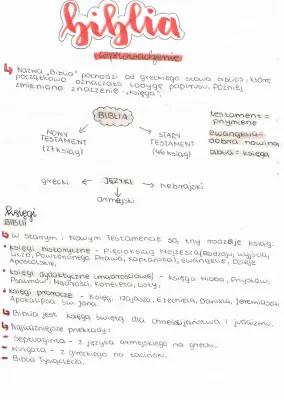 biblia
wprowadzenie
Nazwa „Biblia" pochodzi od greckiego słowa biblos, które
początkowo oznaczało łodygę papirusu. Później
zmieniono znaczenie - „księga".
BIBLIA
testament =
przymierze
ewangelia =
dobra nowina
biblia = księga
NOWY
TESTAMENT
(27 ksiąg)
STARY
TESTAMENT
(46 ksiąg)
grecki ← JĘZYKI → hebrajski
armejski
księgi
BIBLII
W starym i Nowym Testamencie są trzy rodzaje ksiąg:
• księgi historyczne - Pięcioksiąg Mojżesza (Rodzaju, Wyjścia,
Liczb, Powtórzonego Prawa, Kapłańska), ewangelie, Dzieje
Apostolskie,
• księgi dydaktyczne (mądrościowe) - Księga Hioba, Przysłów,
Psalmów, Mądrości, Koheleta, Listy,
• księgi prorocze - Księgi: Izajasza, Ezechiela, Daniela, Jeremiasza,
Apokalipsa św. Jana.
Biblia jest księgą świętą dla chrześcijaństwa i judaizmu.
Najważniejsze przekłady:
- Septuaginta - z języka armejskiego na grecki.
- Wulgata - z greckiego na łaciński.
- Biblia Tysiąclecia.